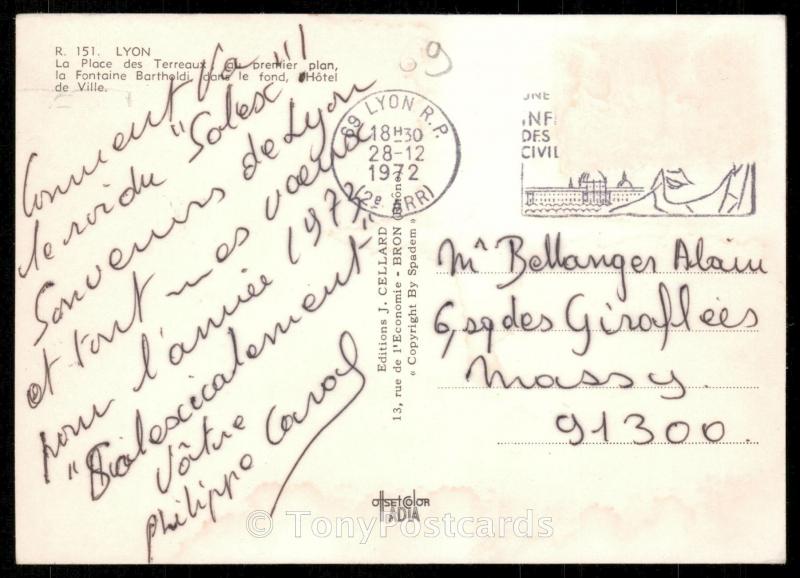 R. 151. LYON
La Place des Terreaux, au premier plan,
la Fontaine Bartholdi, dans le fond, l'Hôtel
de Ville.
69
Comment va
le roi du "Solex"!!
Souvenirs de Lyon
et tout mes vœux
pour l'année 1973
"Solexicalement"
Vôtre
Philippe
69 LYON R.P.
18H30
28-12
1972
(2e ARR)
UNE
INF
DES
CIVIL
Editions J. CELLARD
13, rue de l'Economie - BRON (Rhône)
« Copyright By Spadem »
Mr Bellanger Alain
6, sq des Giroflées
Massy.
91300.
OFFSETCOLOR
IADIA
© TonyPostcards